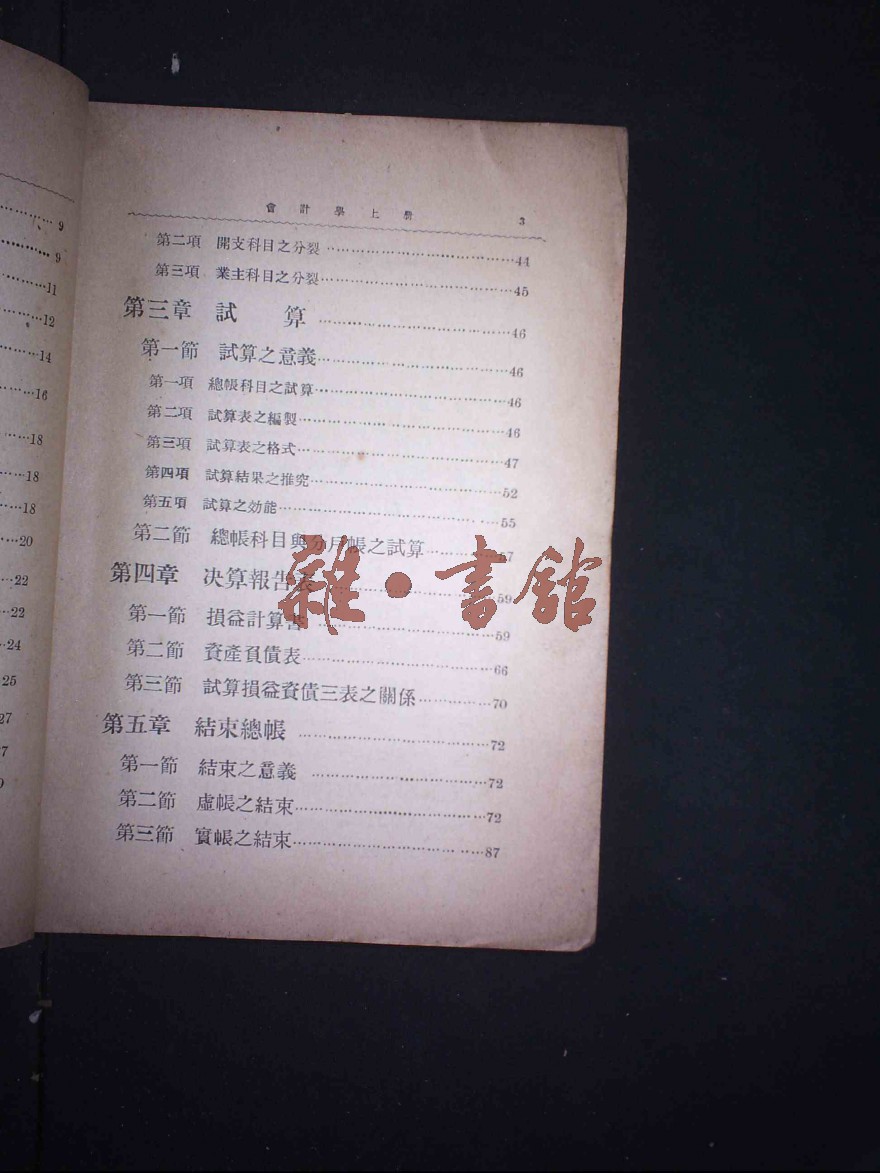 9
9
11
12
14
16
18
18
18
20
22
22
24
25
27
7
9
會計學上冊 3
第二項 開支科目之分裂 44
第三項 業主科目之分裂 45
第三章 試算 46
第一節 試算之意義 46
第一項 總帳科目之試算 46
第二項 試算表之編製 46
第三項 試算表之格式 47
第四項 試算結果之推究 52
第五項 試算之効能 55
第二節 總帳科目與分戶帳之試算 57
第四章 决算報告表 59
第一節 損益計算書 59
第二節 資產負債表 66
第三節 試算損益資債三表之關係 70
第五章 結束總帳 72
第一節 結束之意義 72
第二節 虛帳之結束 72
第三節 實帳之結束 87
雜·書館